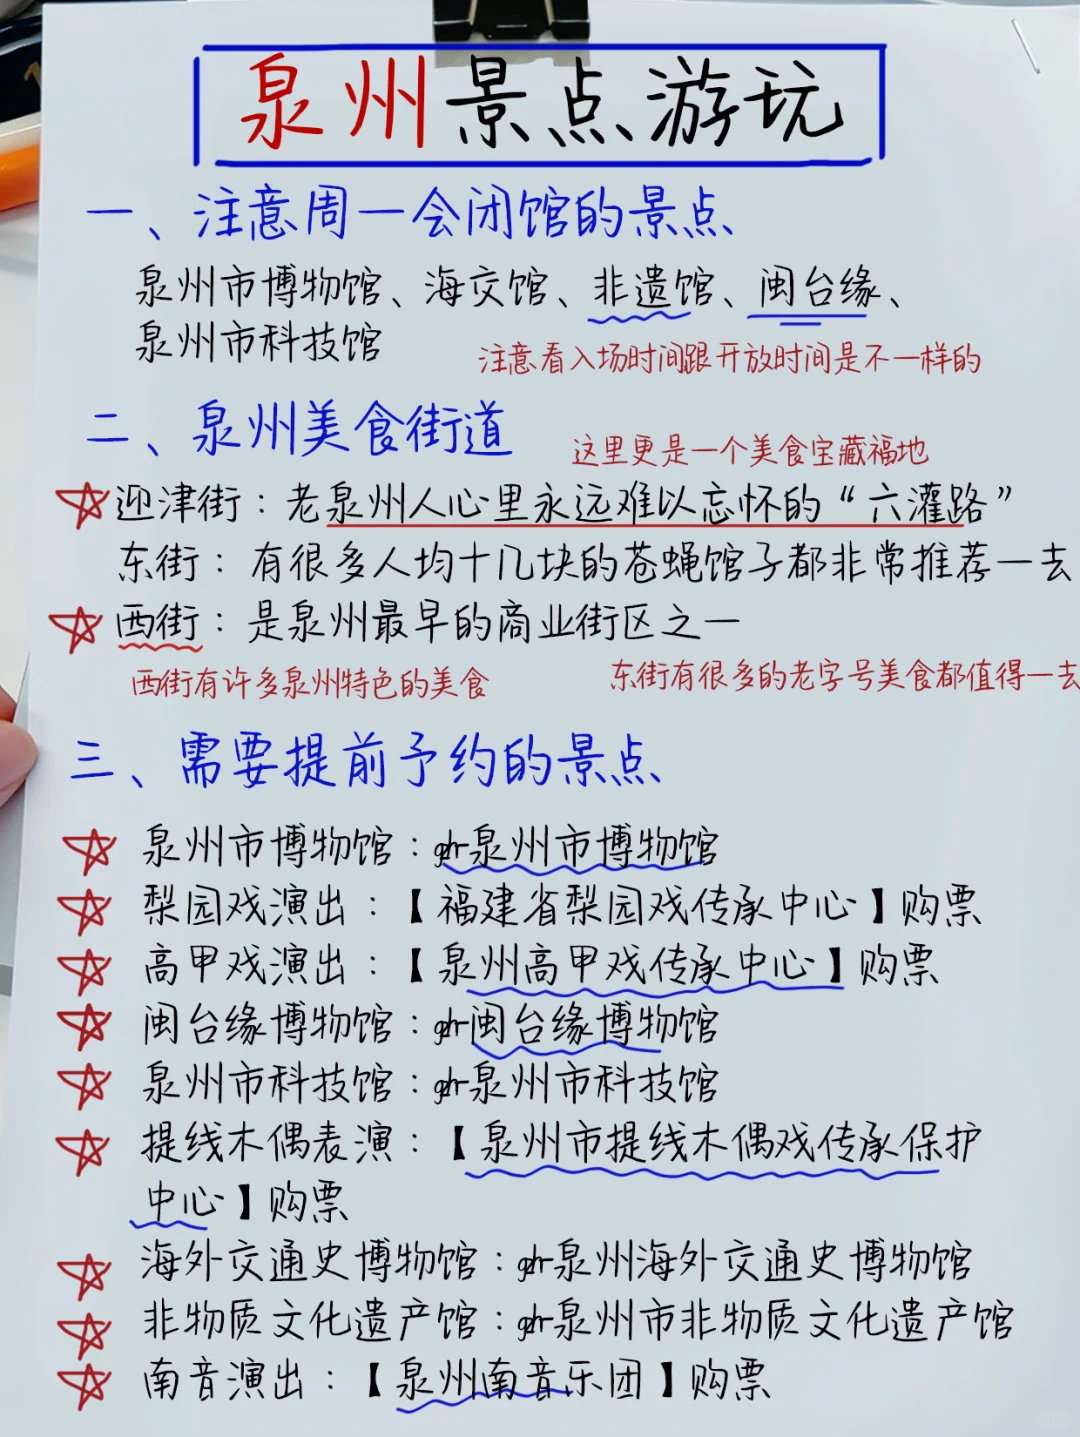 泉州景点游玩
一、注意周一会闭馆的景点
泉州市博物馆、海交馆、非遗馆、闽台缘、
泉州市科技馆
注意看入场时间跟开放时间是不一样的
二、泉州美食街道
这里更是一个美食宝藏福地
迎津街：老泉州人心里永远难以忘怀的“六灌路”
东街：有很多人均十几块的苍蝇馆子都非常推荐一去
西街：是泉州最早的商业街区之一
西街有许多泉州特色的美食
东街有很多的老字号美食都值得一去
三、需要提前予约的景点
泉州市博物馆：gzh泉州市博物馆
梨园戏演出：【福建省梨园戏传承中心】购票
高甲戏演出：【泉州高甲戏传承中心】购票
闽台缘博物馆：gzh闽台缘博物馆
泉州市科技馆：gzh泉州市科技馆
提线木偶表演：【泉州市提线木偶戏传承保护
中心】购票
海外交通史博物馆：gzh泉州海外交通史博物馆
非物质文化遗产馆：gzh泉州市非物质文化遗产馆
南音演出：【泉州南音乐团】购票